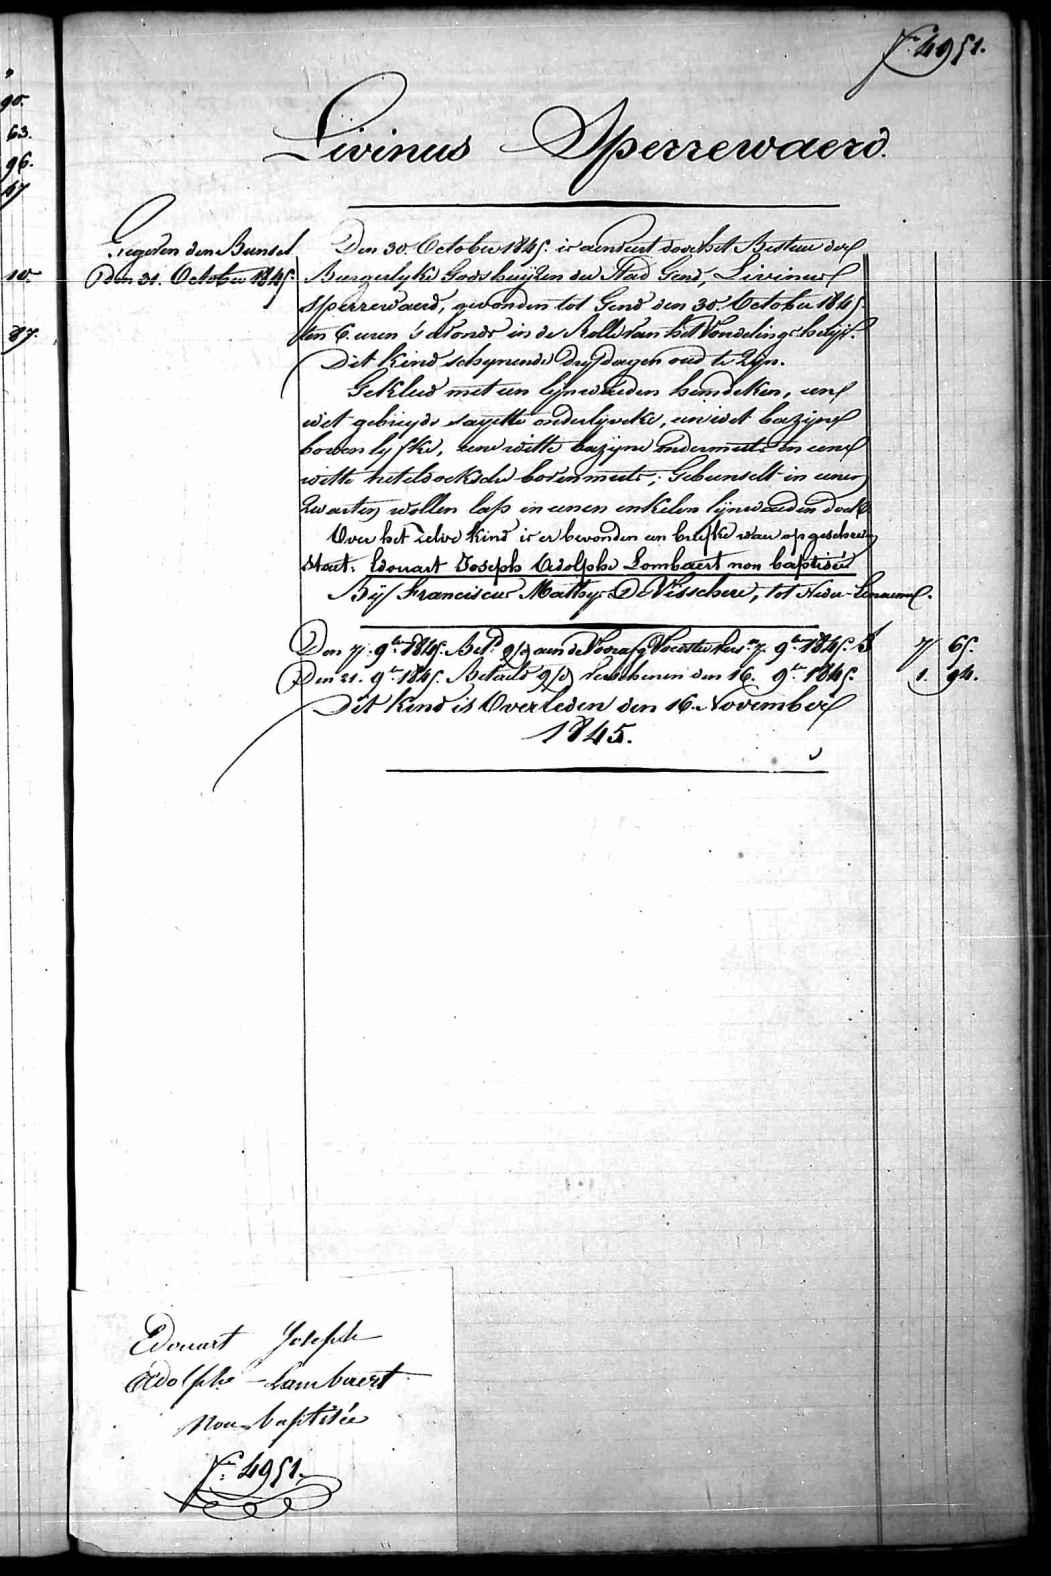 90.
63.
96.
17
10.
87.
Fo. 4951.
Livinus Sperrewaerd.
Gegeven den Bunsel
Den 31. October 1845.
Den 30. October 1845. is aenveirt door het Bestuer der
Burgerlyke Godshuyzen der Stad Gend, Livinus
Sperrewaerd, gevonden tot Gend den 30. October 1845
ten 6. uren 's avonds in de Rolle van het Vondelings huys.
Dit kind schynende dry dagen oud te zyn.
Gekleed met een lynwaeden hemdeken, een
wit gebreyde sayette onderlyveke, een wit bazyne
bovenlyfke, eene witte bazyne ondermuts en eene
witte neteldoeksche bovenmuts; Gebunselt in eenen
zwarten wollen lap in eenen enkelen lynwaeden doek.
Over het zelve kind is er bevonden een briefke waer op geschreven
staet: Edouart Joseph Adolphe Lombaert non baptisée
By Franciscus Mathys De Visschere, tot Neder-
Den 7. 9ber 1845. Bet. aen de Voorafg Voedster 7. 9ber 1845. 7 65.
Den 21. 9ber 1845. Betaeld verschenen den 16. 9ber 1845. 1. 94.
Dit kind is Overleden den 16. November
1845.
Edouart Joseph
Adolphe Lambaert
Non baptisée
Fo. 4951.